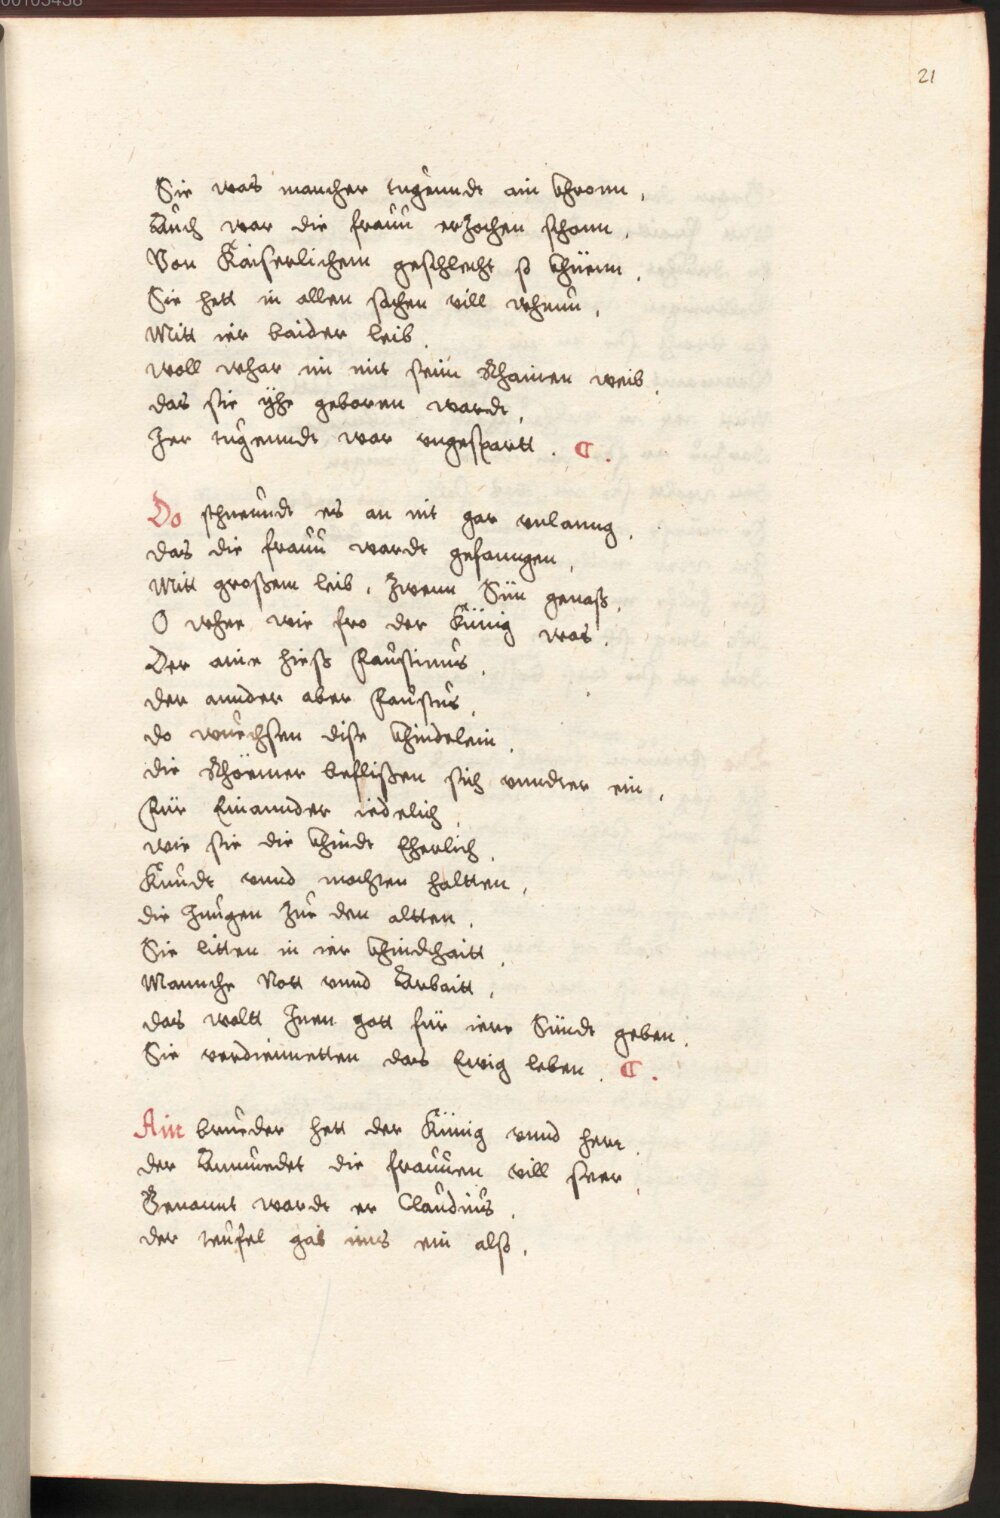 21
Sie was mancher tugenndt ain khronn,
Auch war die frauu erzochen schonn,
Von Kaiserlichem geschlecht so khüenn,
Sie hett in allen sachen vill rhumi,
Mitt ier baider leib,
woll whar im mit seim Rhainen weib,
das sie yhe geboren wardt,
Jer tugenndt war vngespartt. C.
Do schneundt es an nit gar vnlanng,
das die frauu wardt gefanngen,
Mitt großem leib, Zwenn Sün genaß,
O whee wie fro der Künig was,
Der aine hieß Faustinus,
der annder aber Faustus,
do wuechsen dise khindelein,
die Rhömer beflißen sich vnndter ein,
Für Einannder iedelich,
wie sie die khindt Eherlich,
Kundt vnnd mochten haltten,
die Jungen Zue den altten,
Sie litten in ier khindthaitt,
Mannche Nott vnnd Arbaitt,
das woltt Jnen gott für iere Sündt geben,
Sie verdiennetten das Ewig leben. C.
Ain brueder hett der Künig vnnd herr,
der Anmuedet die frauuen vill seer,
Genannt wardt er Claudius,
der teufel gab ims ein alß,